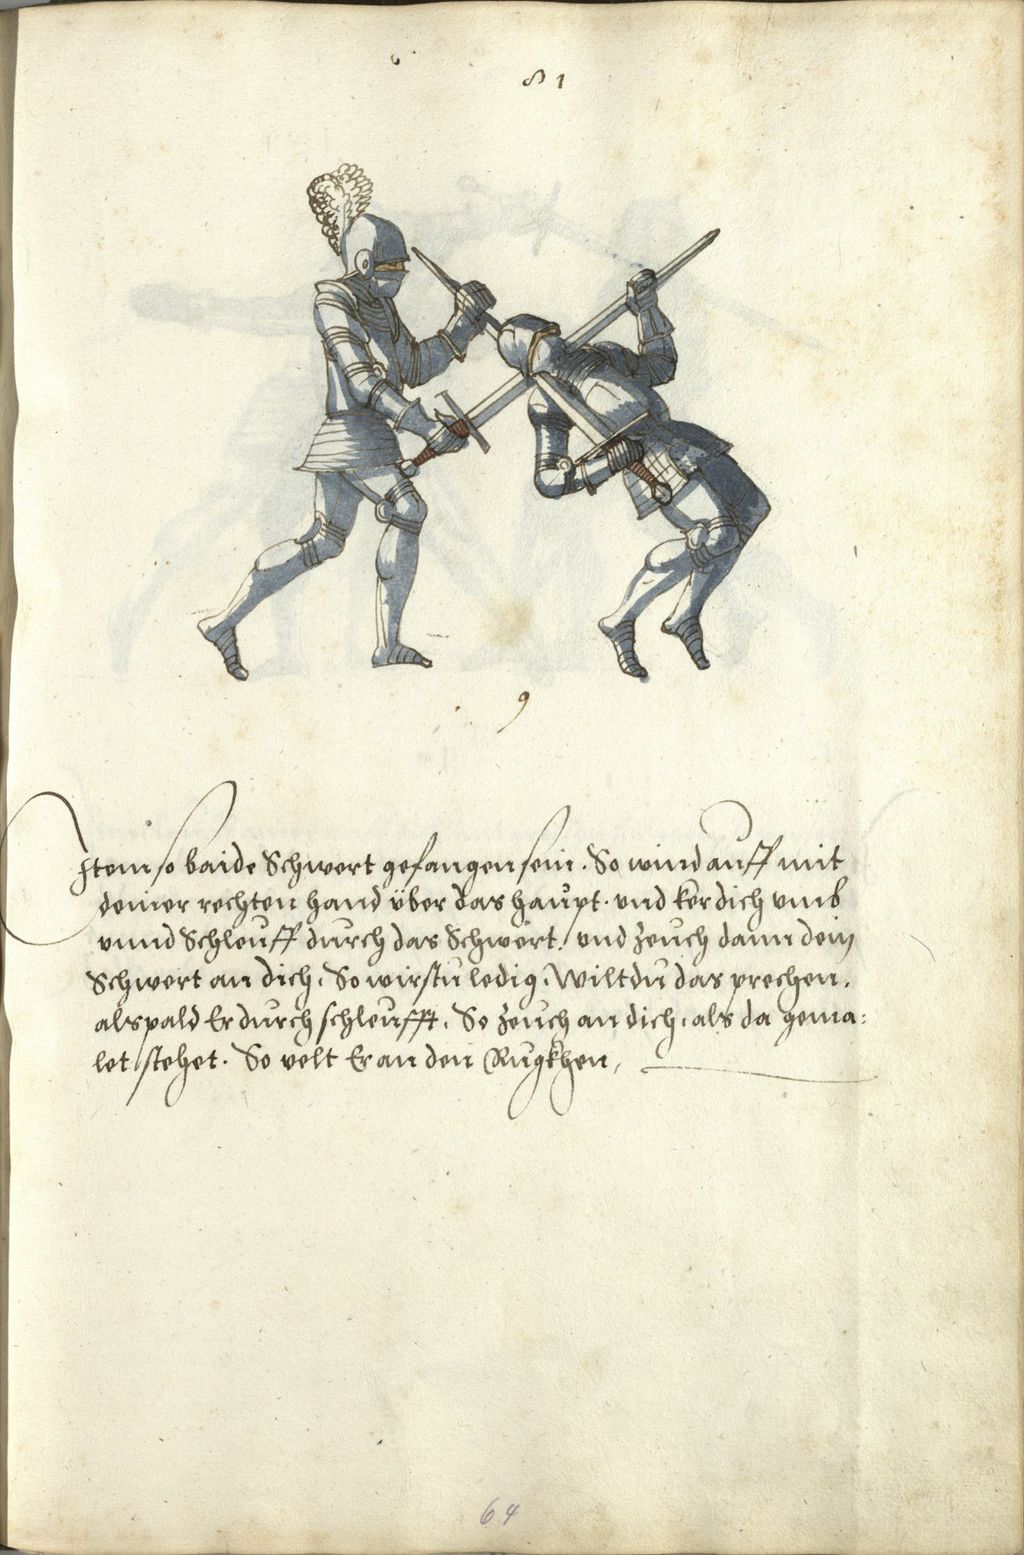 81
9
Item so baide Schwert gefangen sein. So wind auff mit
deiner rechten hand über das haupt. und ker dich umb
unnd Schleuff durch das Schwert. und Zeuch dann dein
Schwert an dich. So wirstu ledig. Wiltdu das prechen.
als pald Er durch schleufft. So Zeuch an dich. als da gema:
let stehet. So velt Er an den Rugkhen.
64